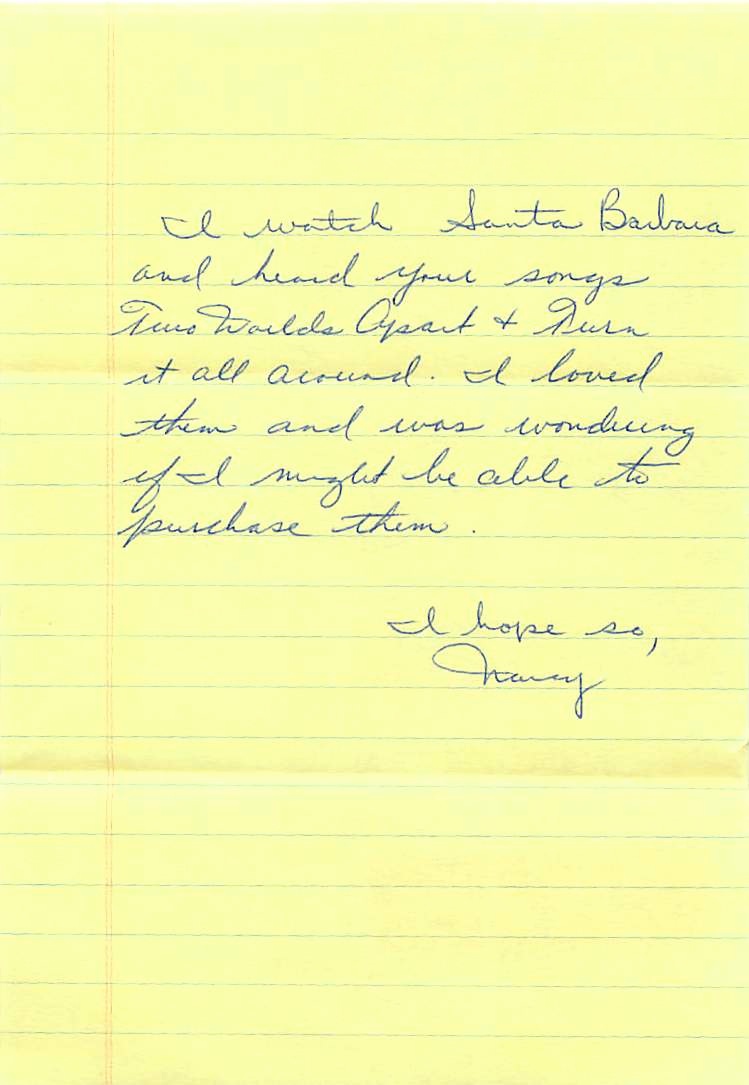 I watch Santa Barbara
and heard your songs
Two Worlds Apart + Turn
it all around. I loved
them and was wondering
if I might be able to
purchase them.
I hope so,
Nancy